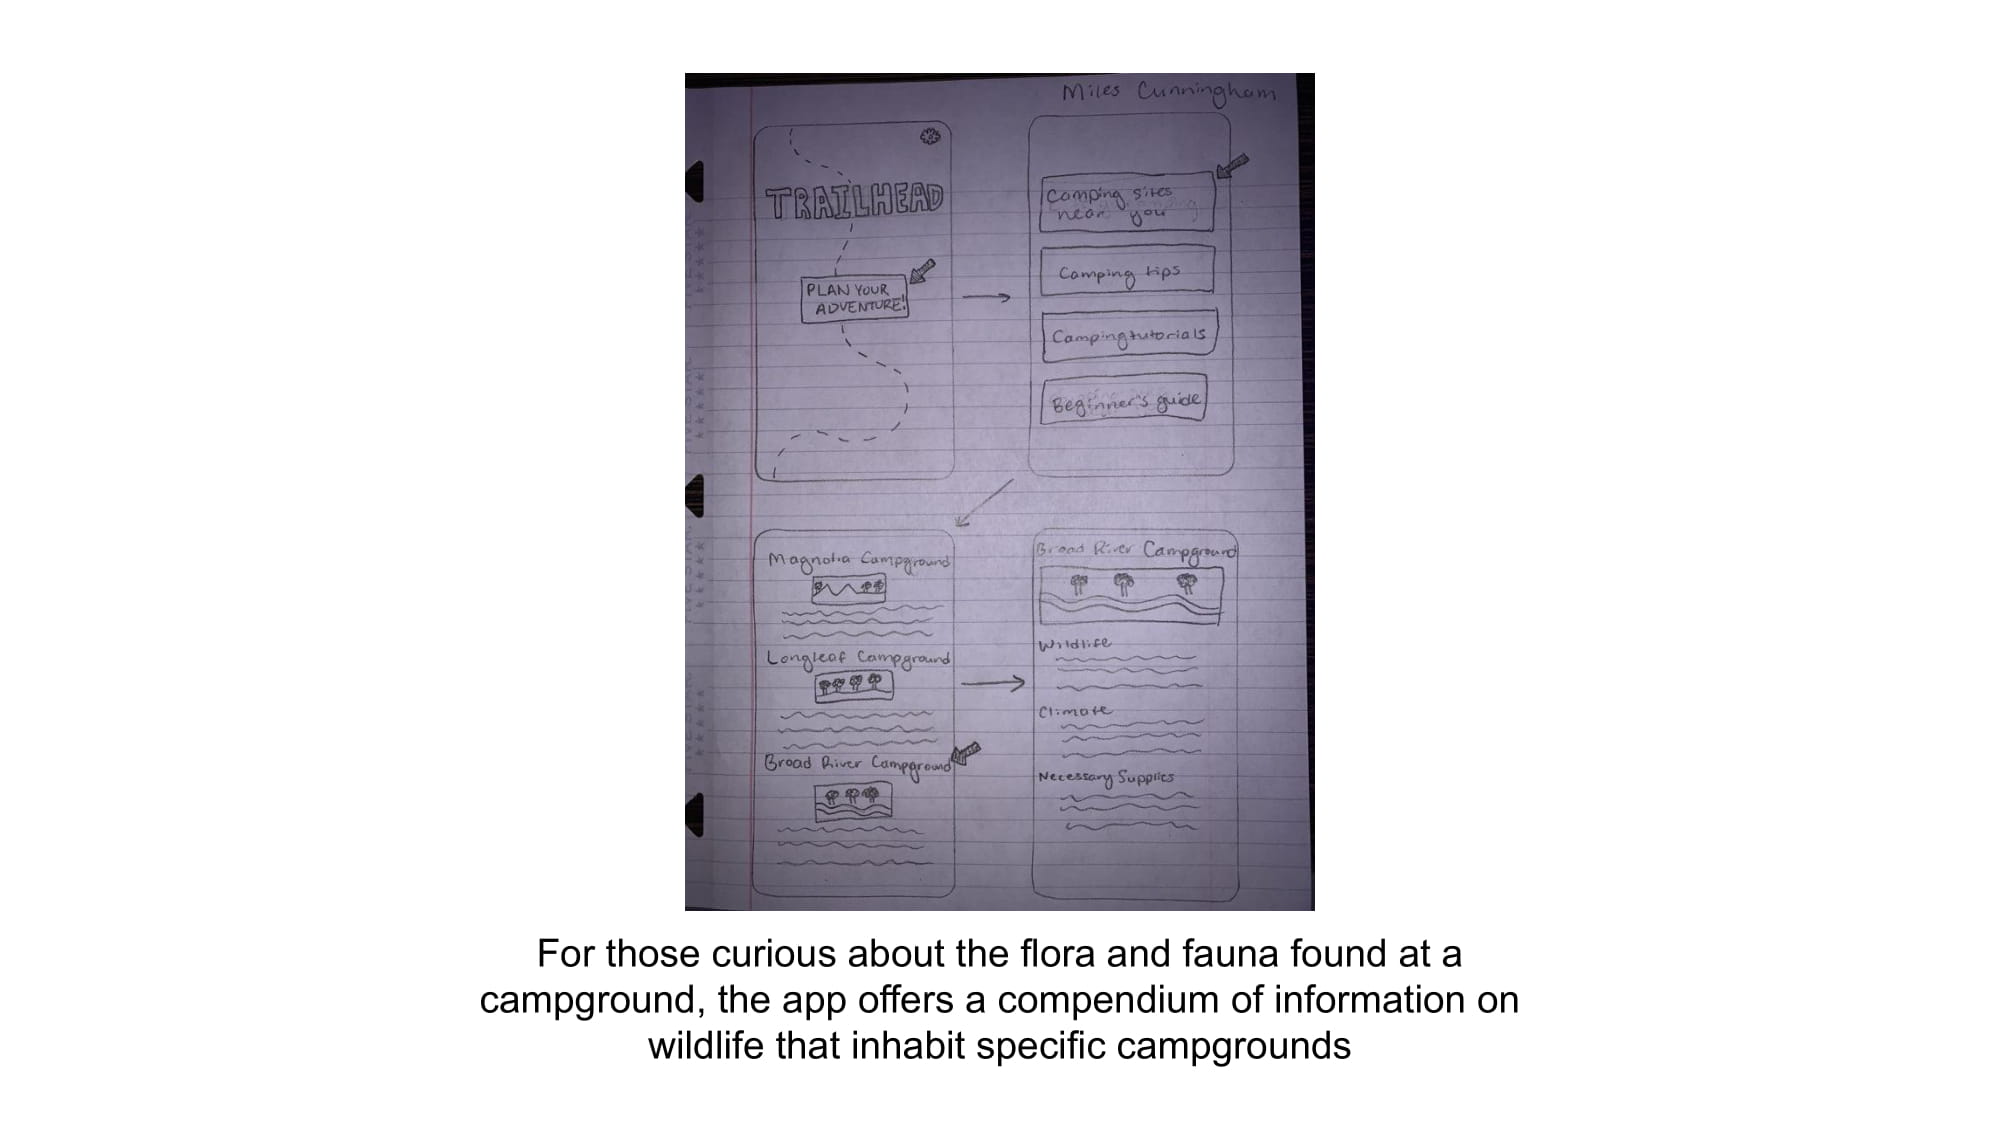 Miles Cunningham
TRAILHEAD
PLAN YOUR
ADVENTURE!
Camping sites
near you
Camping tips
Camping tutorials
Beginner's guide
Magnolia Campground
Longleaf Campground
Broad River Campground
Broad River Campground
Wildlife
Climate
Necessary Supplies
For those curious about the flora and fauna found at a
campground, the app offers a compendium of information on
wildlife that inhabit specific campgrounds